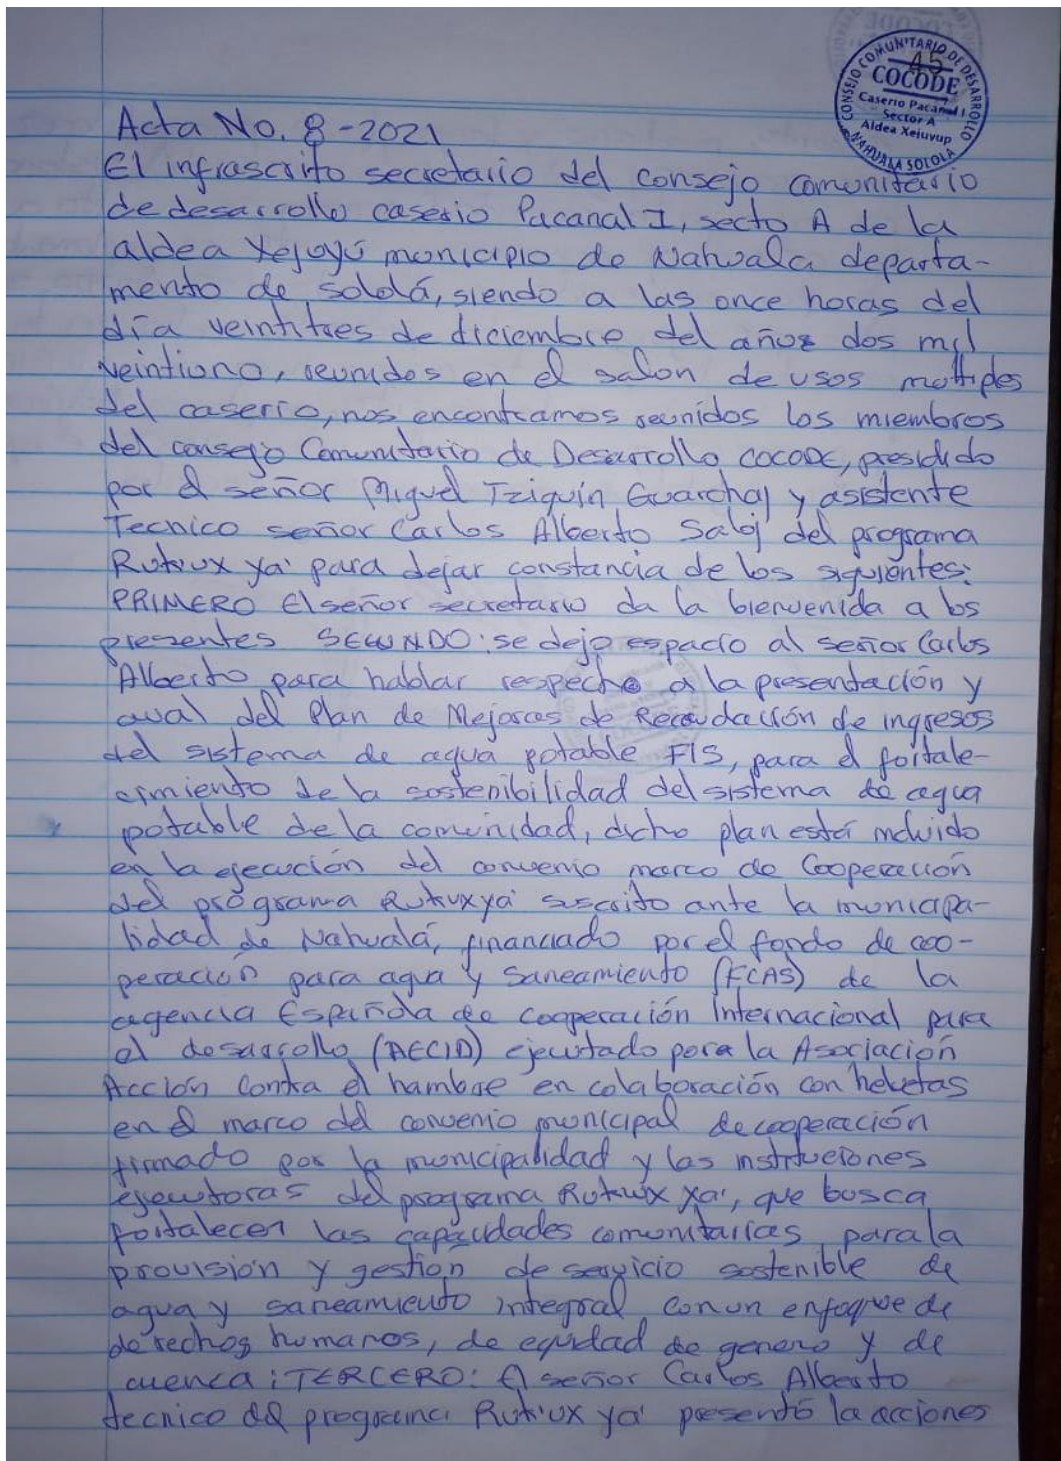 CONSEJO COMUNITARIO DE DESARROLLO
45
COCODE
Caserio Pacanal I
Sector A
Aldea Xejuyup
NAHUALA SOLOLA
Acta No. 8-2021
El infrascrito secretario del consejo comunitario
de desarrollo caserio Pacanal I, secto A de la
aldea Xejuyú municipio de Nahuala departa-
mento de sololá, siendo a las once horas del
día veintitres de diciembre del años dos mil
veintiuno, reunidos en el salon de usos multiples
del caserio, nos encontramos reunidos los miembros
del consejo Comunitario de Desarrollo COCODE, presidido
por el señor Miguel Tziquín Guarchaj y asistente
Tecnico señor Carlos Alberto Saloj del programa
Rutux ya' para dejar constancia de los siguientes:
PRIMERO El señor secretario da la bienvenida a los
presentes SEGUNDO: se dejo espacio al señor Carlos
Alberto para hablar respecto a la presentación y
aval del Plan de Mejoras de Recaudación de ingresos
del sistema de agua potable FIS, para el fortale-
cimiento de la sostenibilidad del sistema de agua
potable de la comunidad, dicho plan está incluido
en la ejecución del convenio marco de Cooperación
del programa Rukuxya' suscrito ante la municipa-
lidad de Nahualá, financiado por el fondo de coo-
peración para agua y Saneamiento (FCAS) de la
agencia Española de cooperación Internacional para
el desarrollo (AECID) ejecutado pora la Asociación
Acción Contra el hambre en colaboración con helvetas
en el marco del convenio municipal de cooperación
firmado por la municipalidad y las instituciones
ejecutoras del programa Rukux ya', que busca
fortalecer las capacidades comunitarias para la
provisión y gestión de servicio sostenible de
agua y saneamiento integral con un enfoque de
derechos humanos, de equidad de genero y de
cuenca; TERCERO: El señor Carlos Alberto
tecnico del programa Ruk'ux ya' presentó la acciones